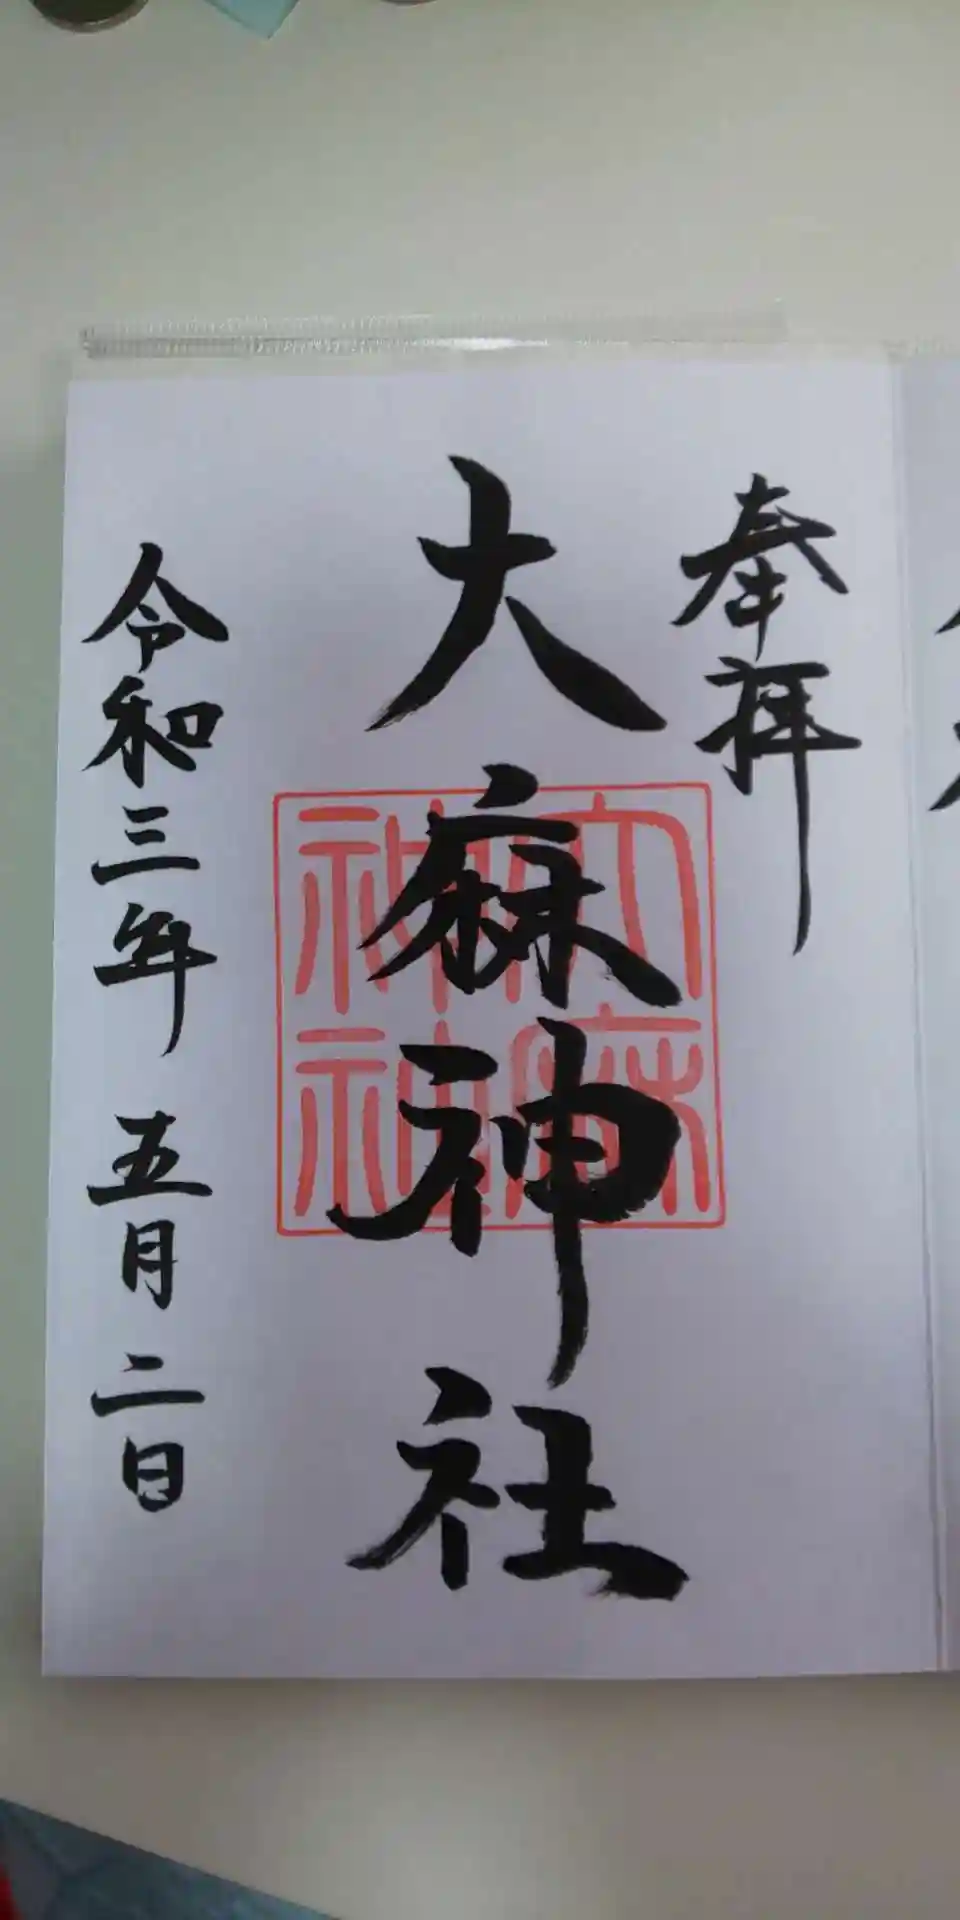 奉拝
大麻神社
大麻神社
令和三年 五月 二日